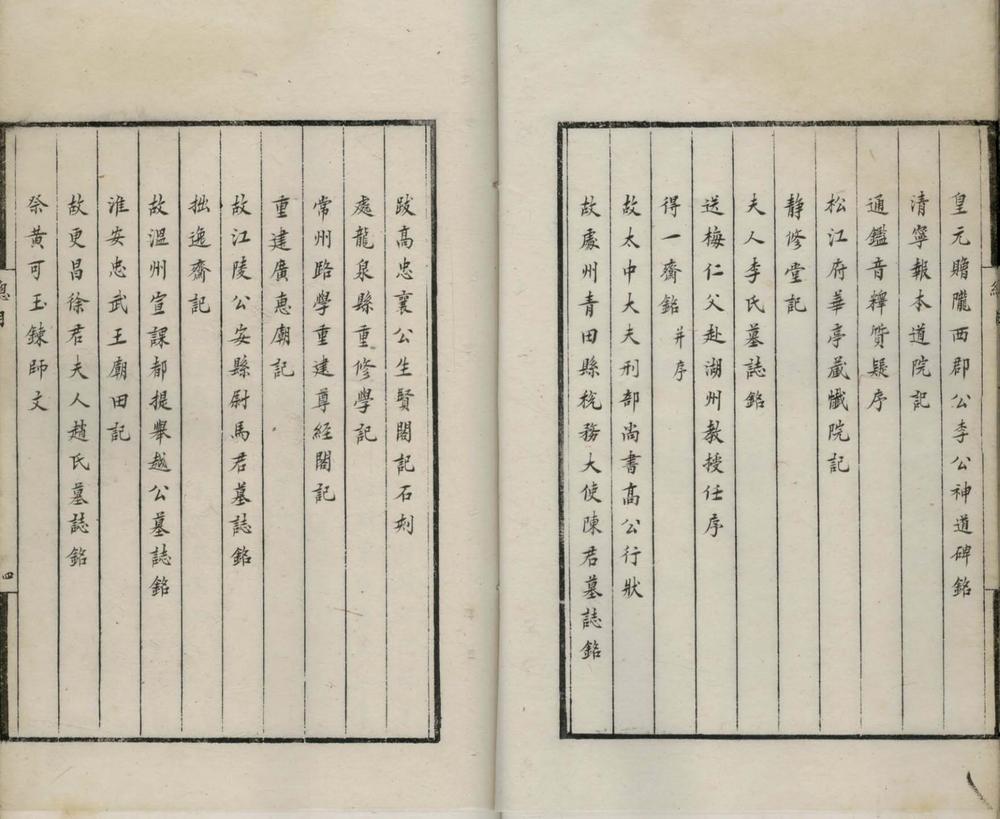 皇元贈隴西郡公李公神道碑銘
清寧報本道院記
通鑑音釋質疑序
松江府華亭藏懺院記
靜修堂記
夫人李氏墓誌銘
送梅仁父赴湖州教授任序
得一齋銘并序
故太中大夫刑部尚書高公行狀
故處州青田縣稅務大使陳君墓誌銘
跋高忠襄公生賢閣記石刻
處龍泉縣重修學記
常州路學重建尊經閣記
重建廣惠廟記
故江陵公安縣尉馬君墓誌銘
拙逸齋記
故溫州宣課都提舉越公墓誌銘
淮安忠武王廟田記
故更昌徐君夫人趙氏墓誌銘
祭黃可玉鍊師文
總目
四